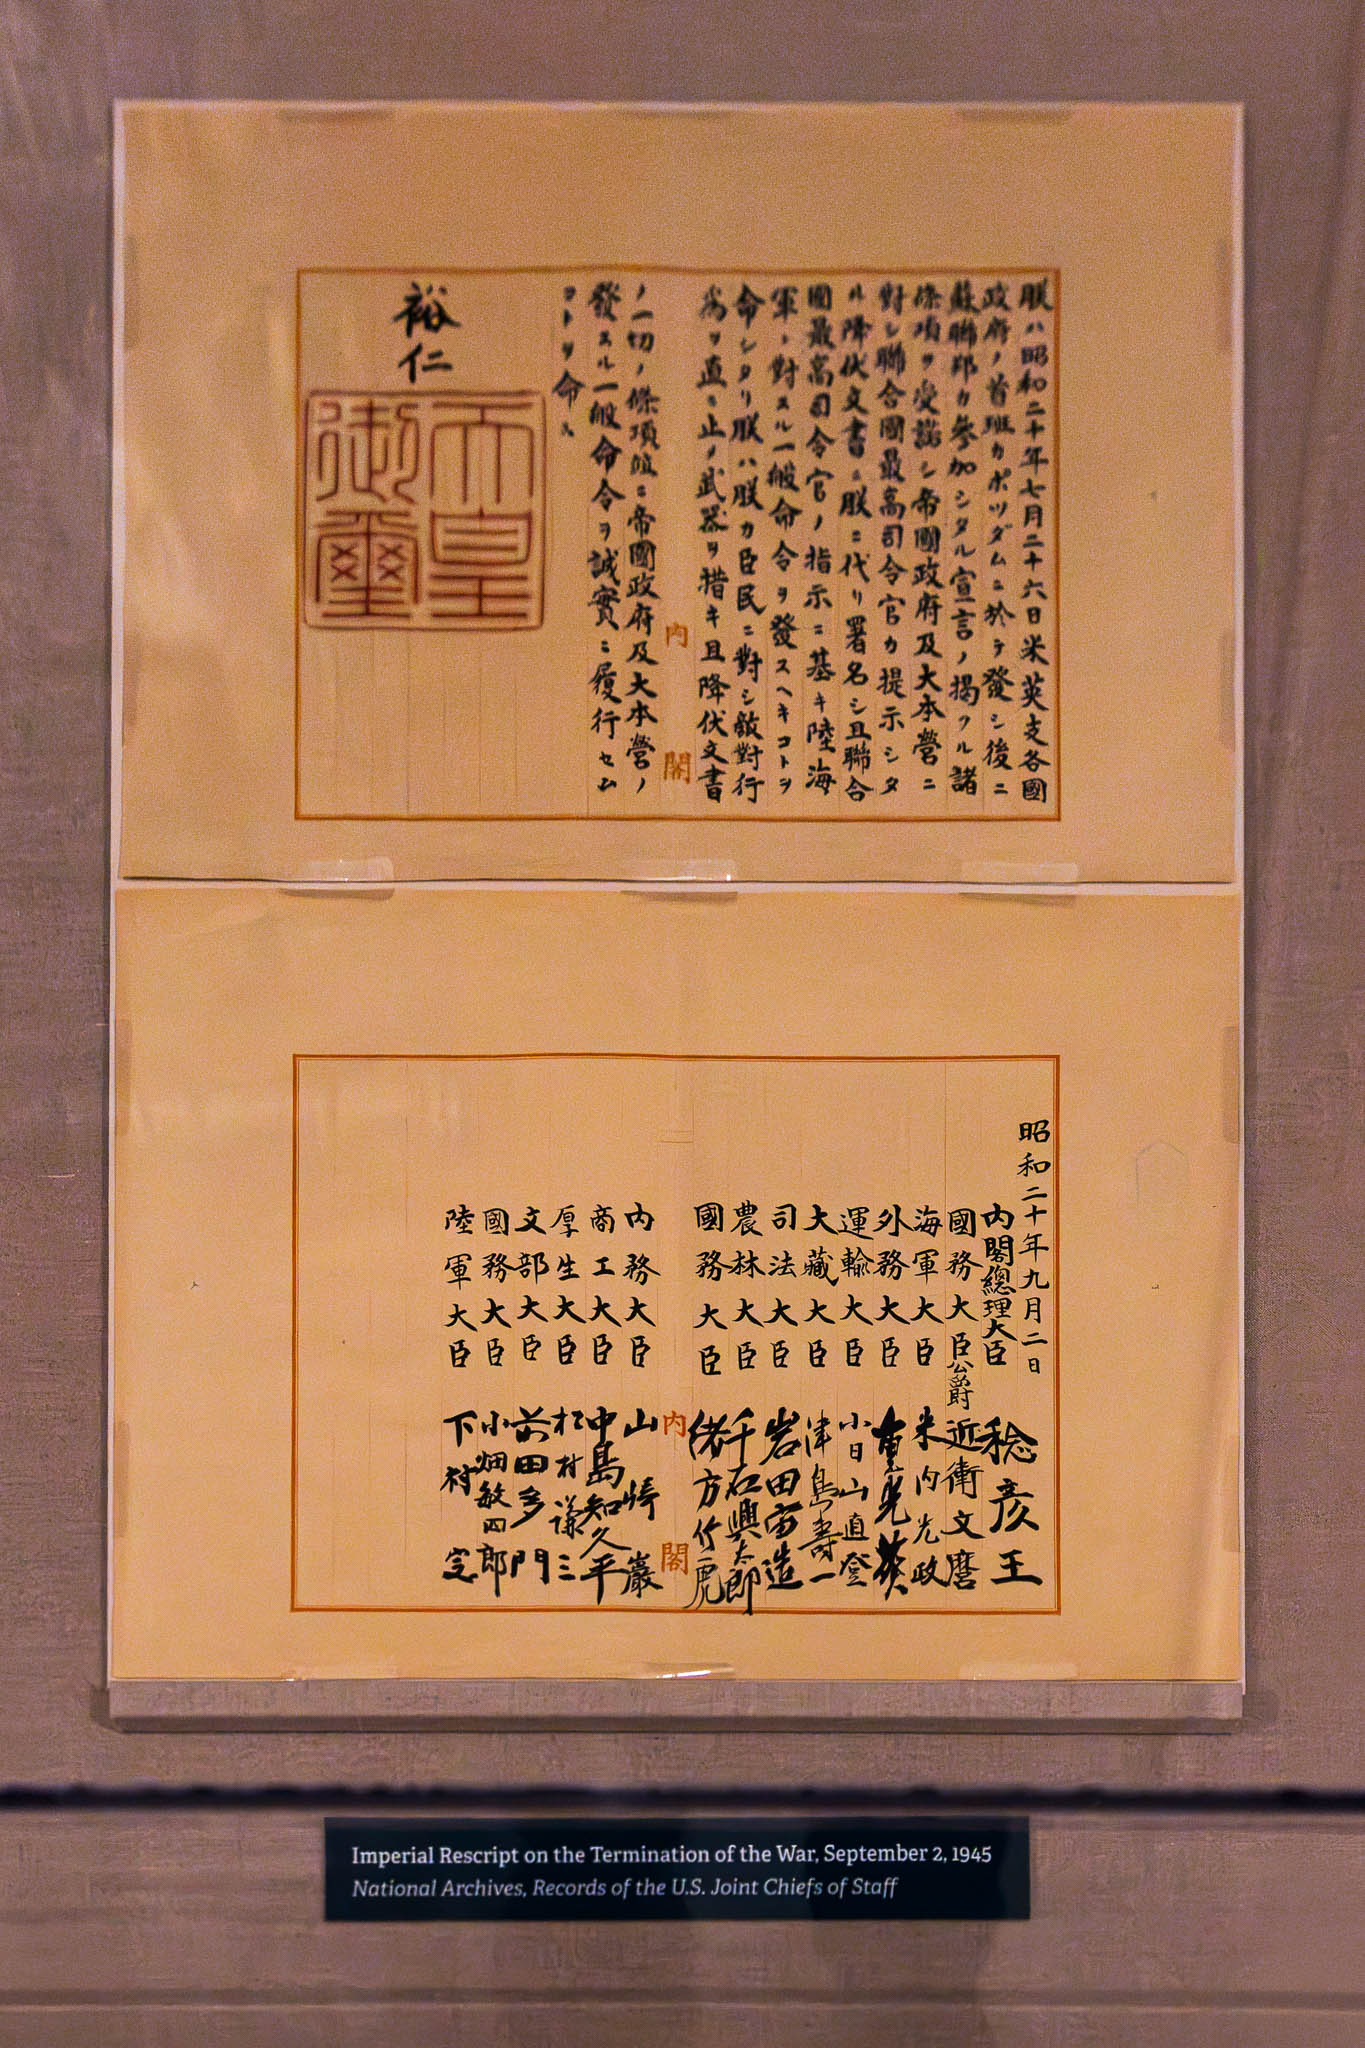 朕ハ昭和二十年七月二十六日米英支各國
政府ノ首班カポツダムニ於テ發シ後ニ
蘇聯邦カ參加シタル宣言ノ掲クル諸
條項ヲ受諾シ帝國政府及大本營ニ
對シ聯合國最高司令官カ提示シタ
ル降伏文書ニ朕ニ代リ署名シ且聯合
國最高司令官ノ指示ニ基キ陸海
軍ニ對スル一般命令ヲ發スヘキコトヲ
命シタリ朕ハ朕カ臣民ニ對シ敵對行
為ヲ直ニ止メ武器ヲ措キ且降伏文書
内閣
ノ一切ノ條項竝ニ帝國政府及大本營ノ
發スル一般命令ヲ誠實ニ履行セム
コトヲ命ス
裕仁
天皇
御璽
昭和二十年九月二日
内閣總理大臣 稔彦王
國務大臣公爵 近衛文麿
海軍大臣 米内光政
外務大臣 重光葵
運輸大臣 小日山直登
大藏大臣 津島壽一
司法大臣 岩田宙造
農林大臣 千石興太郎
國務大臣 緒方竹虎
内閣
内務大臣 山崎巖
商工大臣 中島知久平
厚生大臣 松村謙三
文部大臣 前田多門
國務大臣 小畑敏四郎
陸軍大臣 下村定
Imperial Rescript on the Termination of the War, September 2, 1945
National Archives, Records of the U.S. Joint Chiefs of Staff